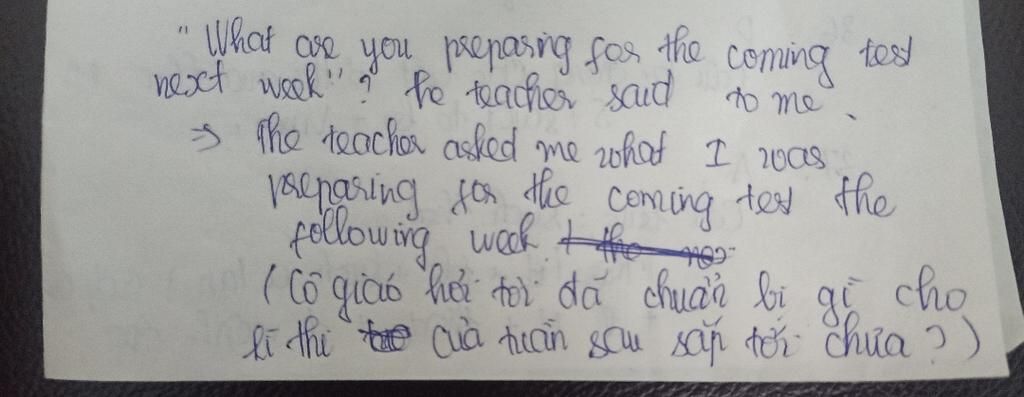 "What are you preparing for the coming test
next week"? the teacher said to me.
=> The teacher asked me what I was
preparing for the coming test the
following week.
(Cô giáo hỏi tôi đã chuẩn bị gì cho
kì thi của tuần sau sắp tới chưa?)